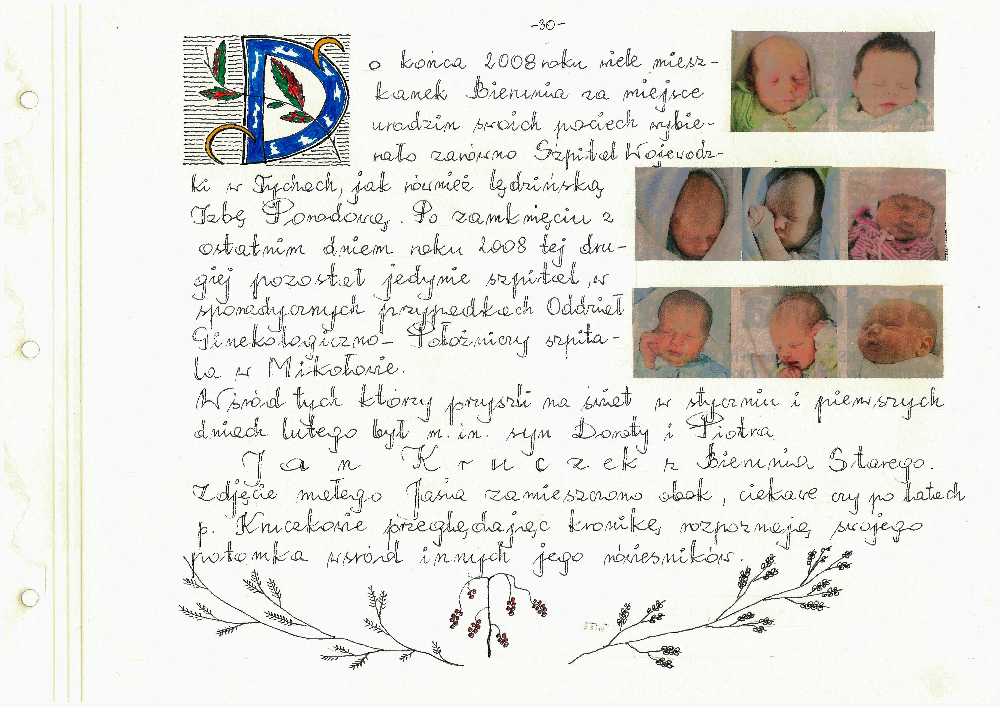 -30-
Do końca 2008 roku wiele miesz-
kanek Bierunia za miejsce
urodzin swoich pociech wybie-
rało zarówno Szpital Wojewódz-
ki w Tychach, jak również lędzińską
Izbę Porodową. Po zamknięciu z
ostatnim dniem roku 2008 tej dru-
giej pozostał jedynie szpital, w
sporadycznych przypadkach Oddział
Ginekologiczno - Położniczy szpita-
la w Mikołowie.
Wśród tych którzy przyszli na świat w styczniu i pierwszych
dniach lutego był m. in. syn Doroty i Piotra
Jan Kruczek z Bierunia Starego.
Zdjęcie małego Jasia zamieszczono obok, ciekawe czy po latach
p. Kruczkowie przeglądając kronikę rozpoznają swojego
potomka wśród innych jego rówieśników.